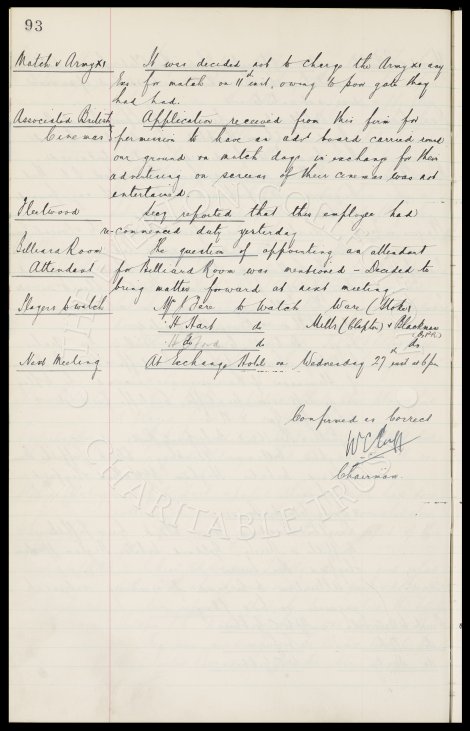 93
Match v Army XI It was decided not to charge the Army XI any
Exs for match on 11th inst, owing to poor gate they
had had.
Associated British Application received from this firm for
Cinemas permission to have an advt board carried round
our ground on match days in exchange for their
advertising on screens of their cinemas was not
entertained.
Fleetwood Secy reported that this employee had
re-commenced duty yesterday
Billiard Room The question of appointing an attendant
Attendant for Billiard Room was mentioned - Decided to
bring matter forward at next meeting
Players to watch Mr to Watch Ware (Stoke)
H Hart do Mills (Clapton) & Blackman
do do
Next Meeting At Exchange Hotel on Wednesday 27th inst at 6pm
Confirmed as Correct
Chairman.
CHARITABLE TRUST